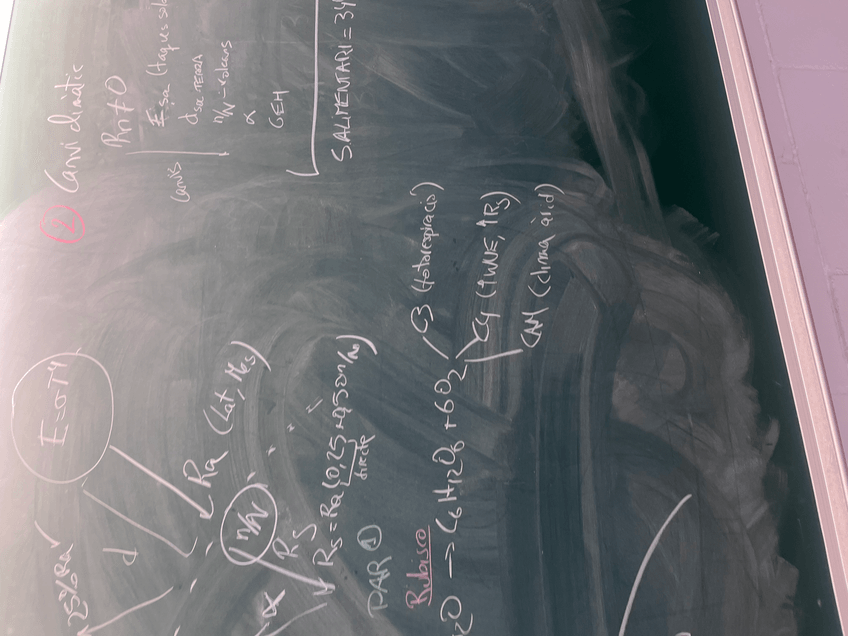 E=σT⁴
25% Ra
d
Ra (Lat, Mes)
n/N
α
Rs
Rs = Ra (0,25 + 0,50 n/N)
directe
PAR ①
Rubisco
H₂O → C₆H₁₂O₆ + 6O₂
C3 (fotorespiració)
C4 (↑WUE, ↑Rs)
CAM (clima àrid)
② Canvi climàtic
Rn ≠ 0
canvis
Esol (taques sol
dSOL-TERRA
n/N - volcans
α
GEH
S.ALIMENTARI = 34